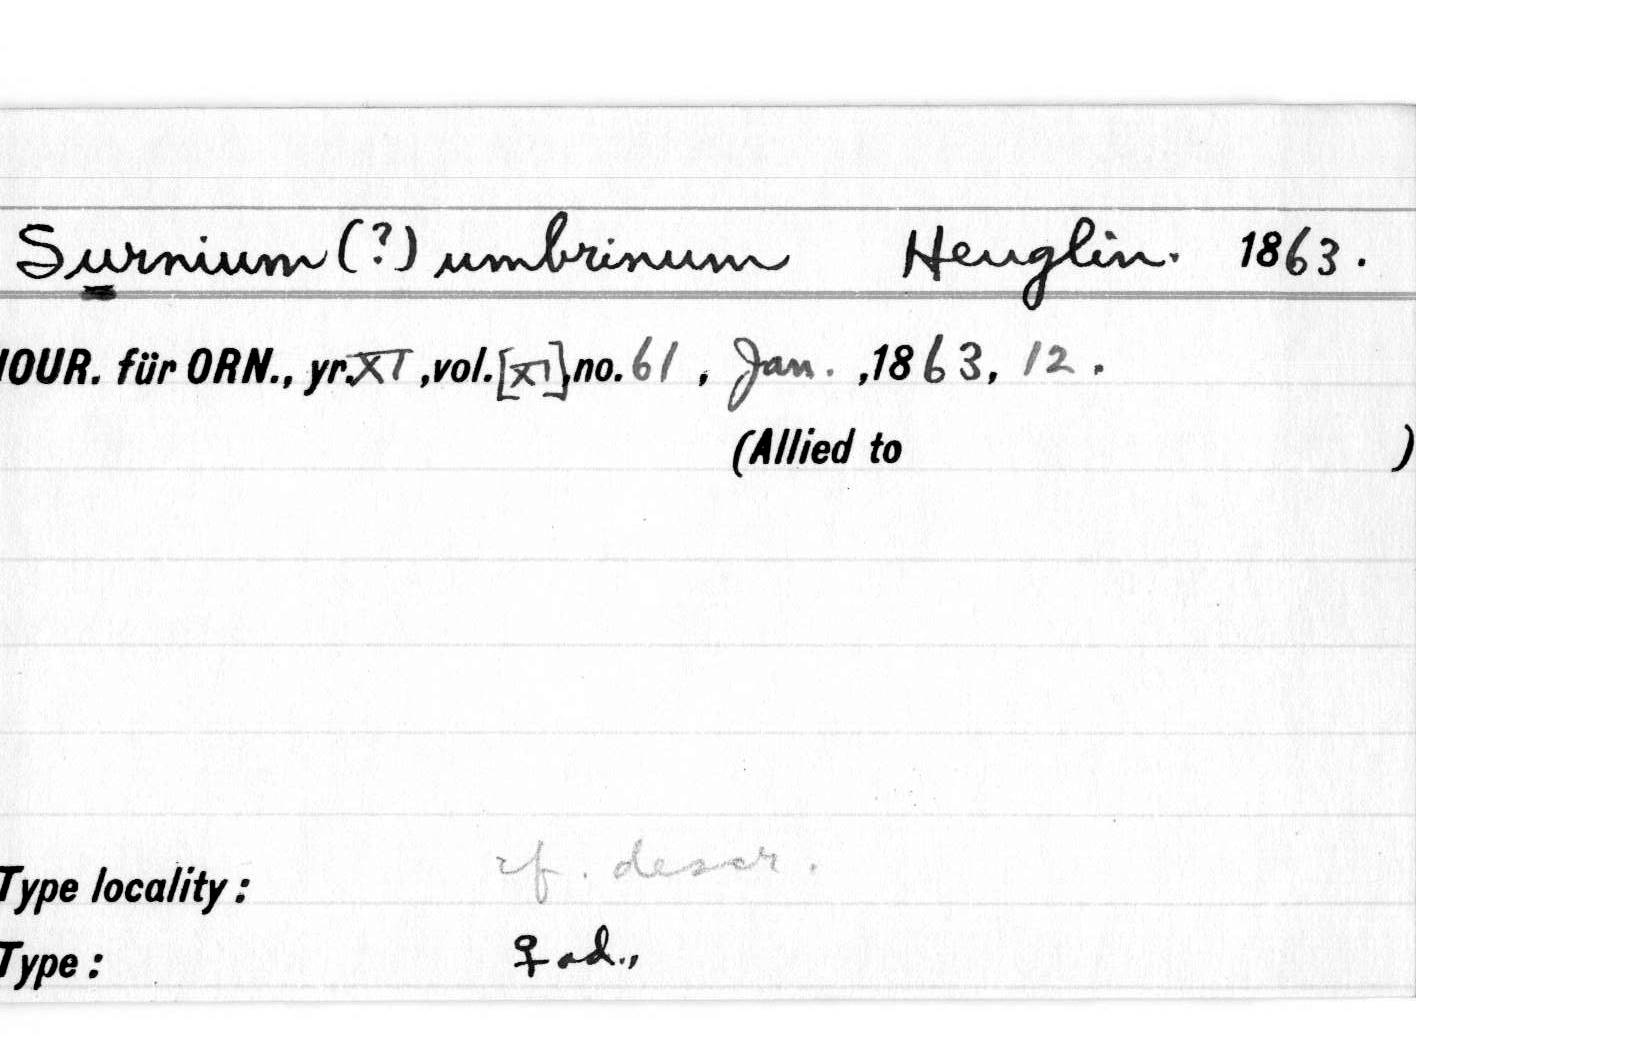 Surnium (?) umbrinum Heuglin. 1863.
JOUR. für ORN., yr. XI, vol. [XI], no. 61, Jan., 1863, 12.
(Allied to )
cf. descr.
Type locality:
Type: ♀ ad.,